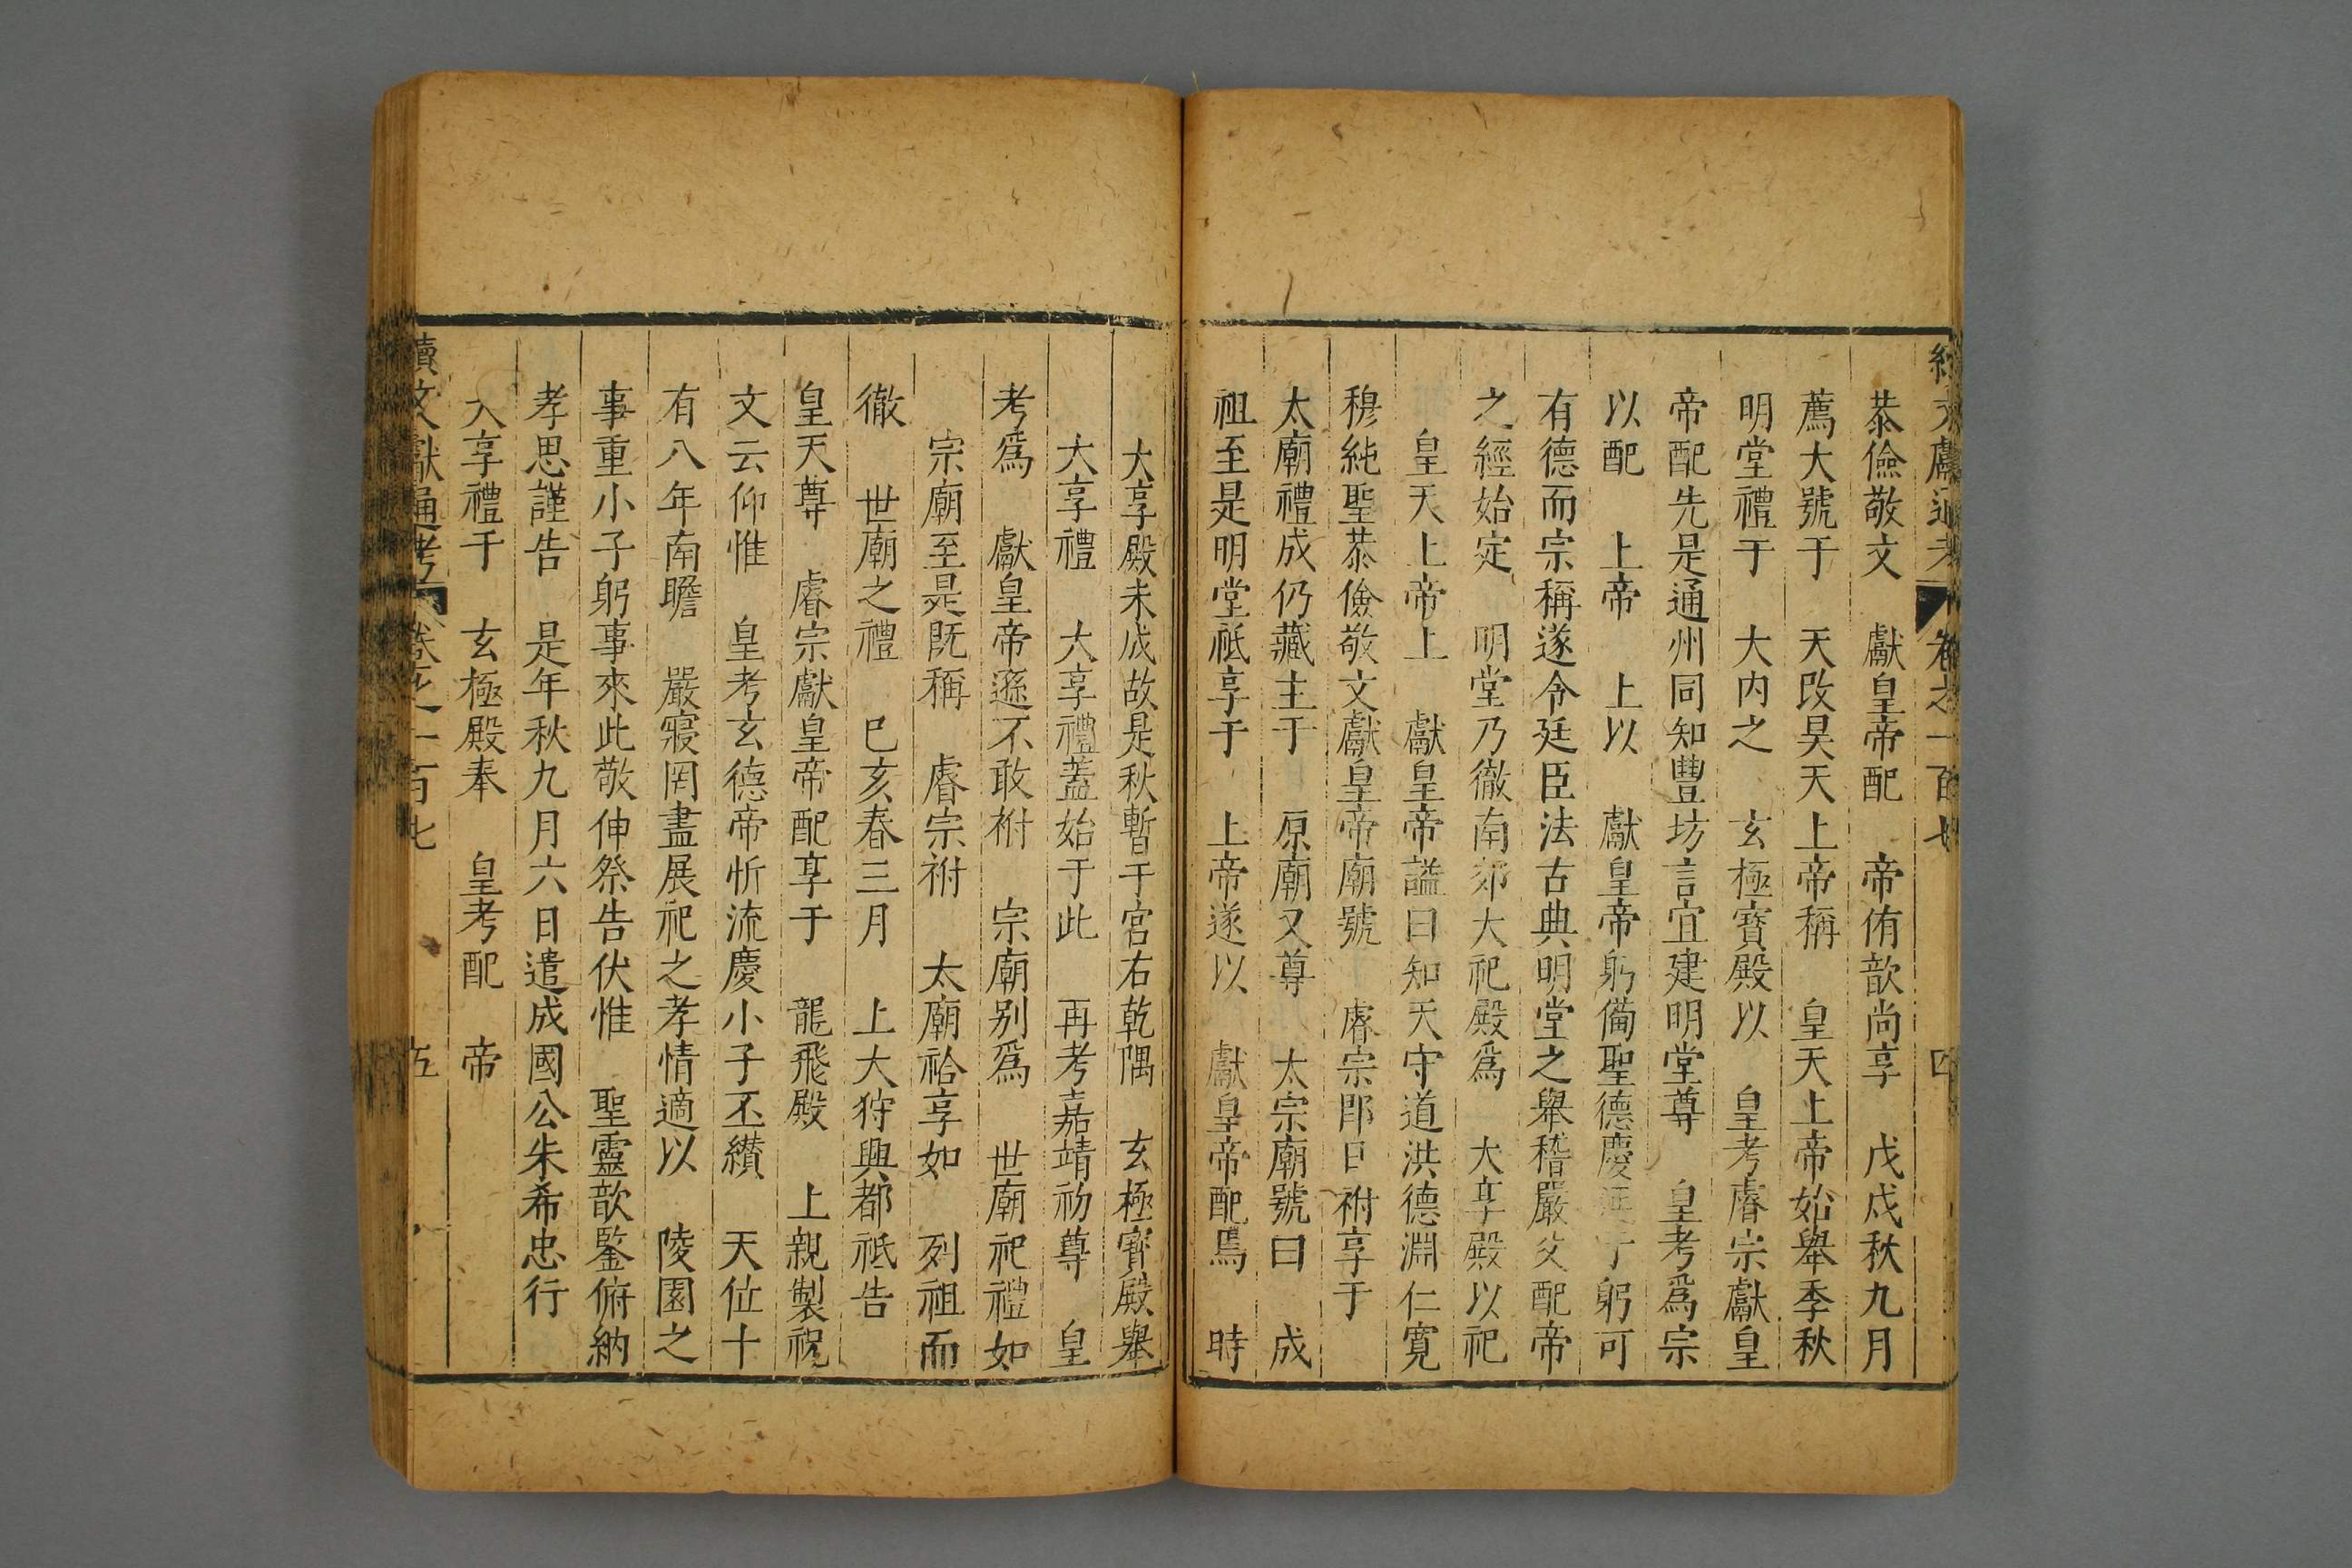 續文獻通考 卷之一百七 四
恭儉敬文 獻皇帝配 帝侑歆尚享 戊戌秋九月
薦大號于 天改昊天上帝稱 皇天上帝始舉季秋
明堂禮于 大内之 玄極寶殿以 皇考睿宗獻皇
帝配先是通州同知豐坊言宜建明堂尊 皇考爲宗
以配 上帝 上以 獻皇帝躬備聖德慶延于躬可
有德而宗稱遂令廷臣法古典明堂之舉稽嚴父配帝
之經始定 明堂乃徹南郊大祀殿爲 大享殿以祀
皇天上帝上 獻皇帝謚曰知天守道洪德淵仁寬
穆純聖恭儉敬文獻皇帝廟號 睿宗即日祔享于
太廟禮成仍藏主于 原廟又尊 太宗廟號曰 成
祖至是明堂祗享于 上帝遂以 獻皇帝配焉 時
大享殿未成故是秋暫于宮右乾隅 玄極寶殿舉
大享禮 大享禮蓋始于此 再考嘉靖初尊 皇
考爲 獻皇帝遜不敢祔 宗廟别爲 世廟祀禮如
宗廟至是既稱 睿宗祔 太廟祫享如 列祖而
徹 世廟之禮 已亥春三月 上大狩興都祗告
皇天尊 睿宗獻皇帝配享于 龍飛殿 上親製祝
文云仰惟 皇考玄德帝忻流慶小子丕纘 天位十
有八年南瞻 嚴寢罔盡展祀之孝情適以 陵園之
事重小子躬事來此敬伸祭告伏惟 聖靈歆鑒俯納
孝思謹告 是年秋九月六日遣成國公朱希忠行
大享禮于 玄極殿奉 皇考配 帝
續文獻通考 卷之一百七 五